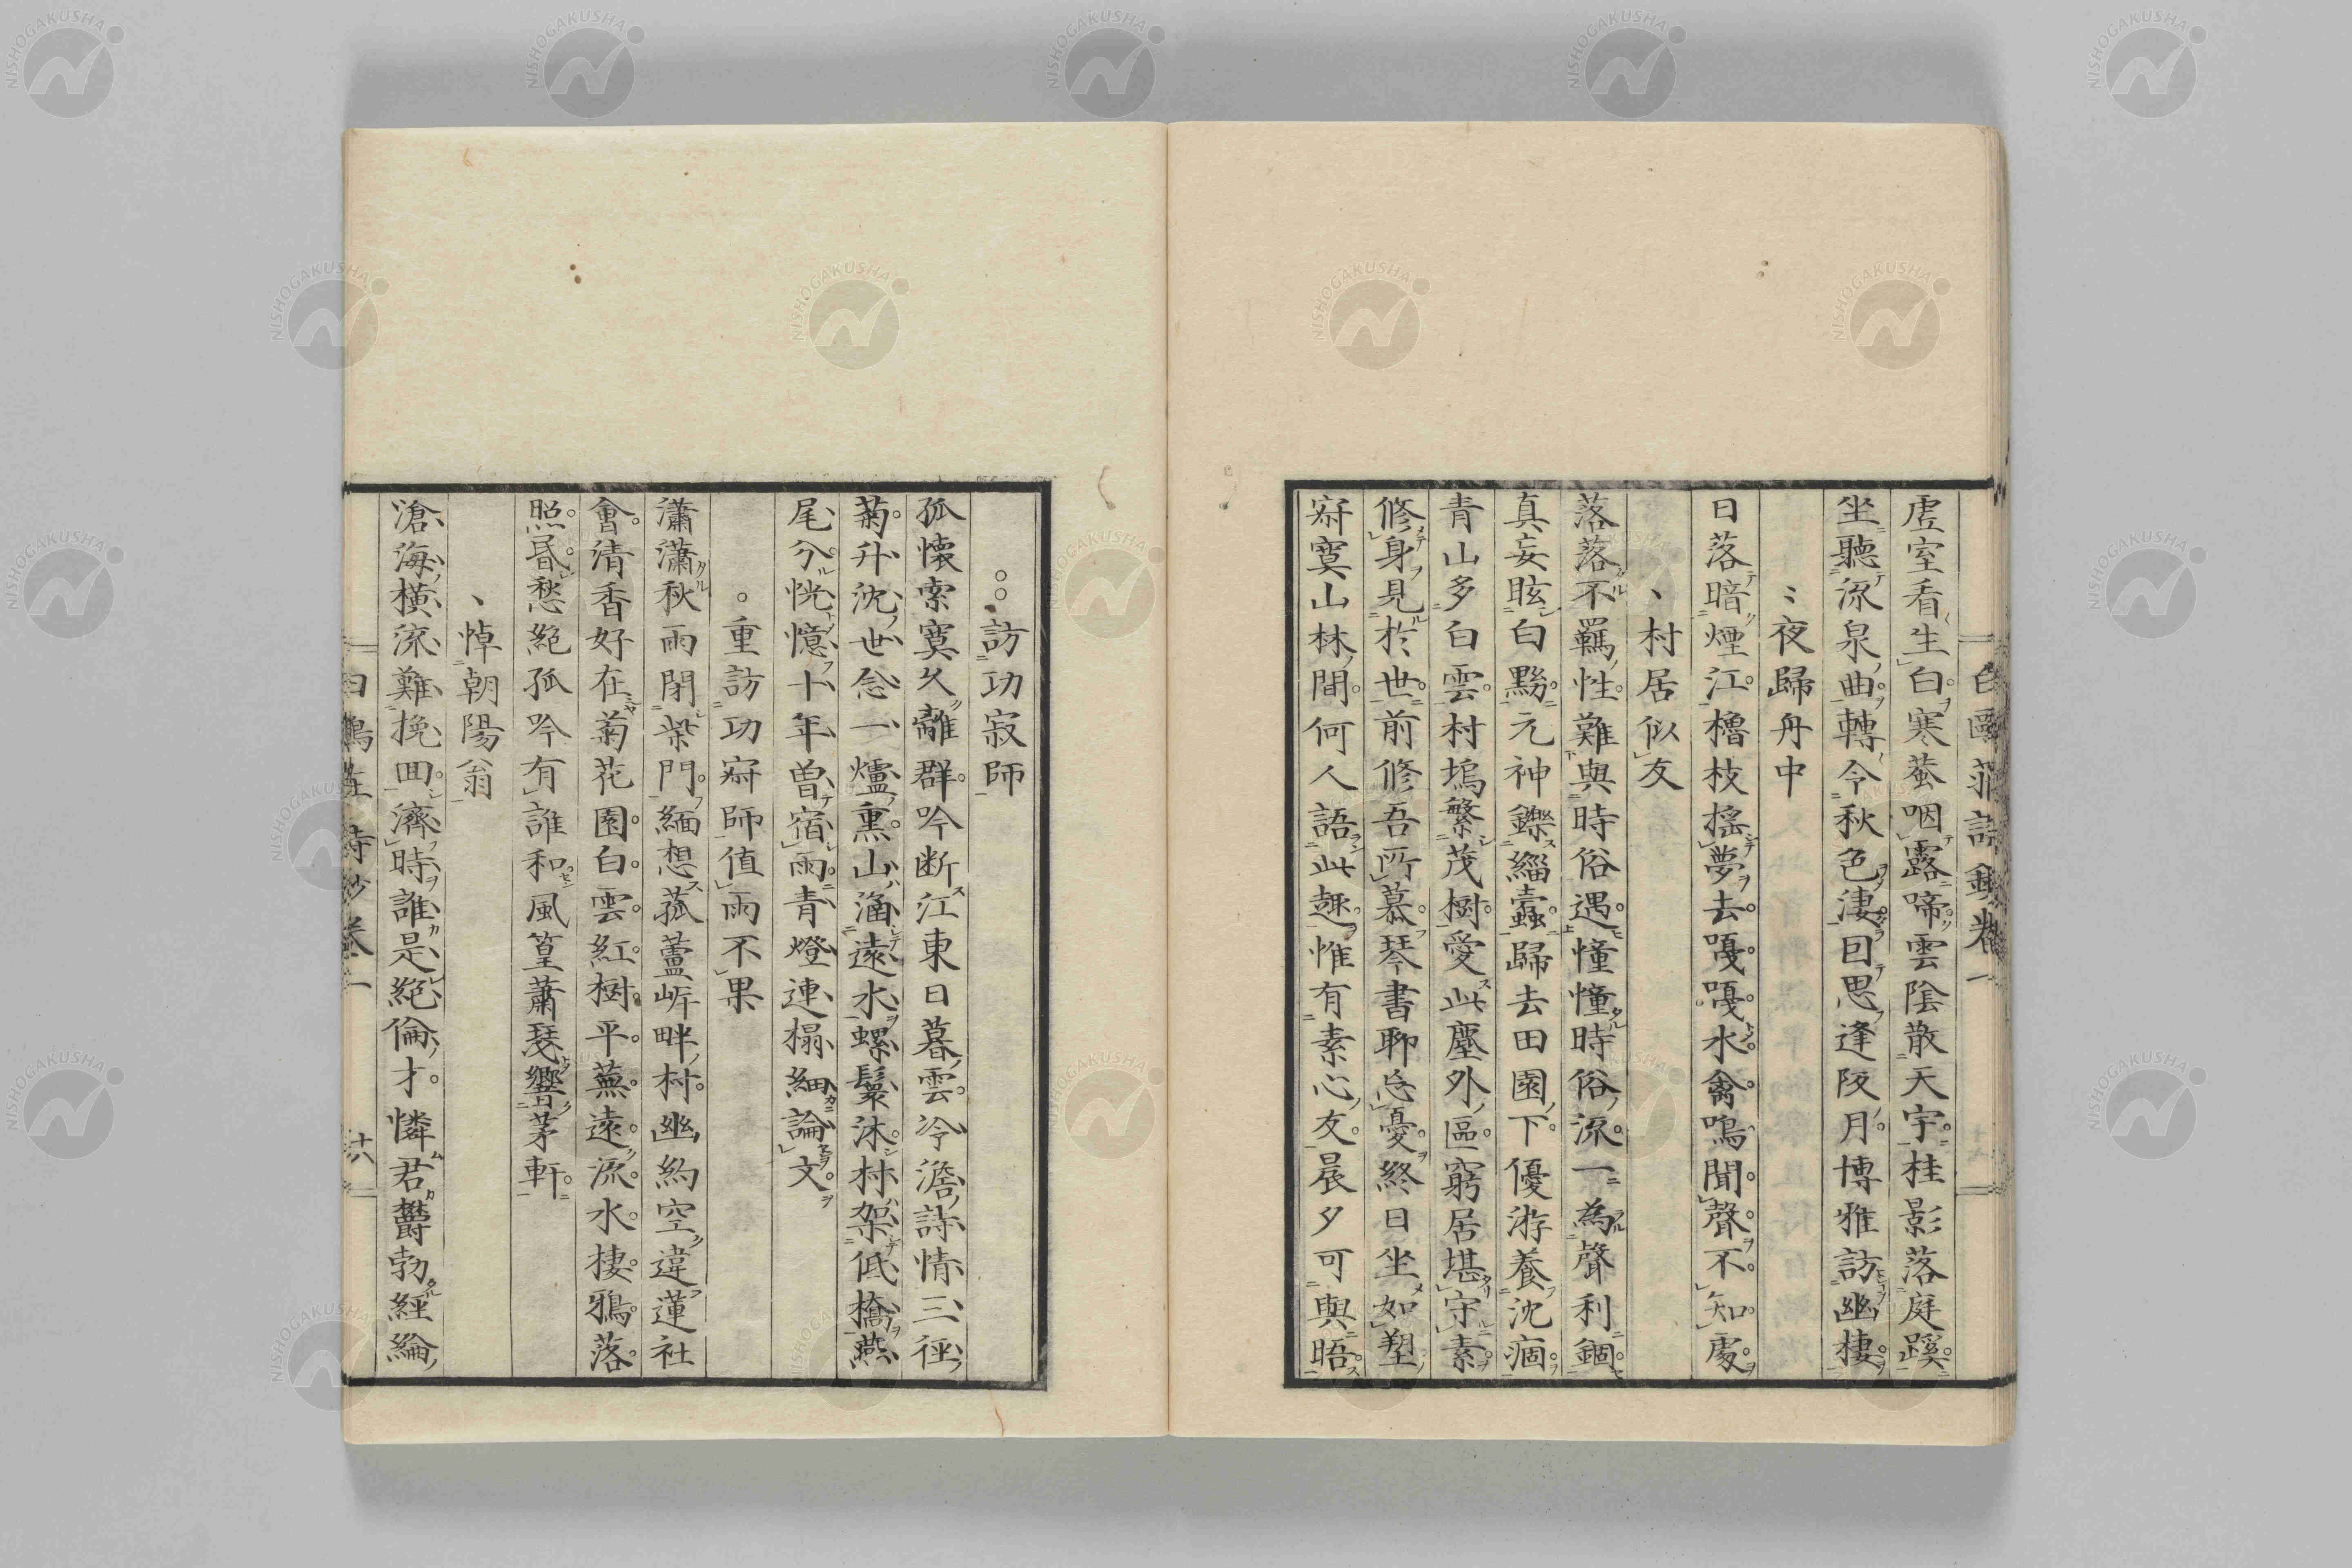 虛室看生白寒蛩咽露啼雲陰散天宇桂影落庭蹊
坐聽流泉曲轉令秋色淒囙思逢阪月博雅訪幽棲
夜歸舟中
日落暗煙江櫓枝搖夢去嘎嘎水禽鳴聞聲不知處
村居似友
落落不羈性難與時俗遇憧憧時俗流一為聲利錮
真妄眩白黟元神鑠緇蠹歸去田園下優游養沈痼
青山多白雲村塢繁茂樹愛此塵外區窮居堪守素
修身見於世前修吾所慕琴書聊忘憂終日坐如塑
寂寞山林間何人語此趣惟有素心友晨夕可與晤
訪功寂師
孤懷索寞久離群吟斷江東日暮雲冷澹詩情三徑
菊升沈世念一爐熏山涵遠水螺鬟沐林架低橋燕
尾分恍憶十年曾宿雨青燈連榻細論文
重訪功寂師值雨不果
瀟瀟秋雨閉柴門緬想菰蘆岸畔村幽約空違蓮社
會清香好在菊花園白雲紅樹平蕪遠流水棲鴉落
照昏愁絕孤吟有誰和風篁蕭瑟響茅軒
悼朝陽翁
滄海橫流難挽回濟時誰是絕倫才憐君鬱勃經綸